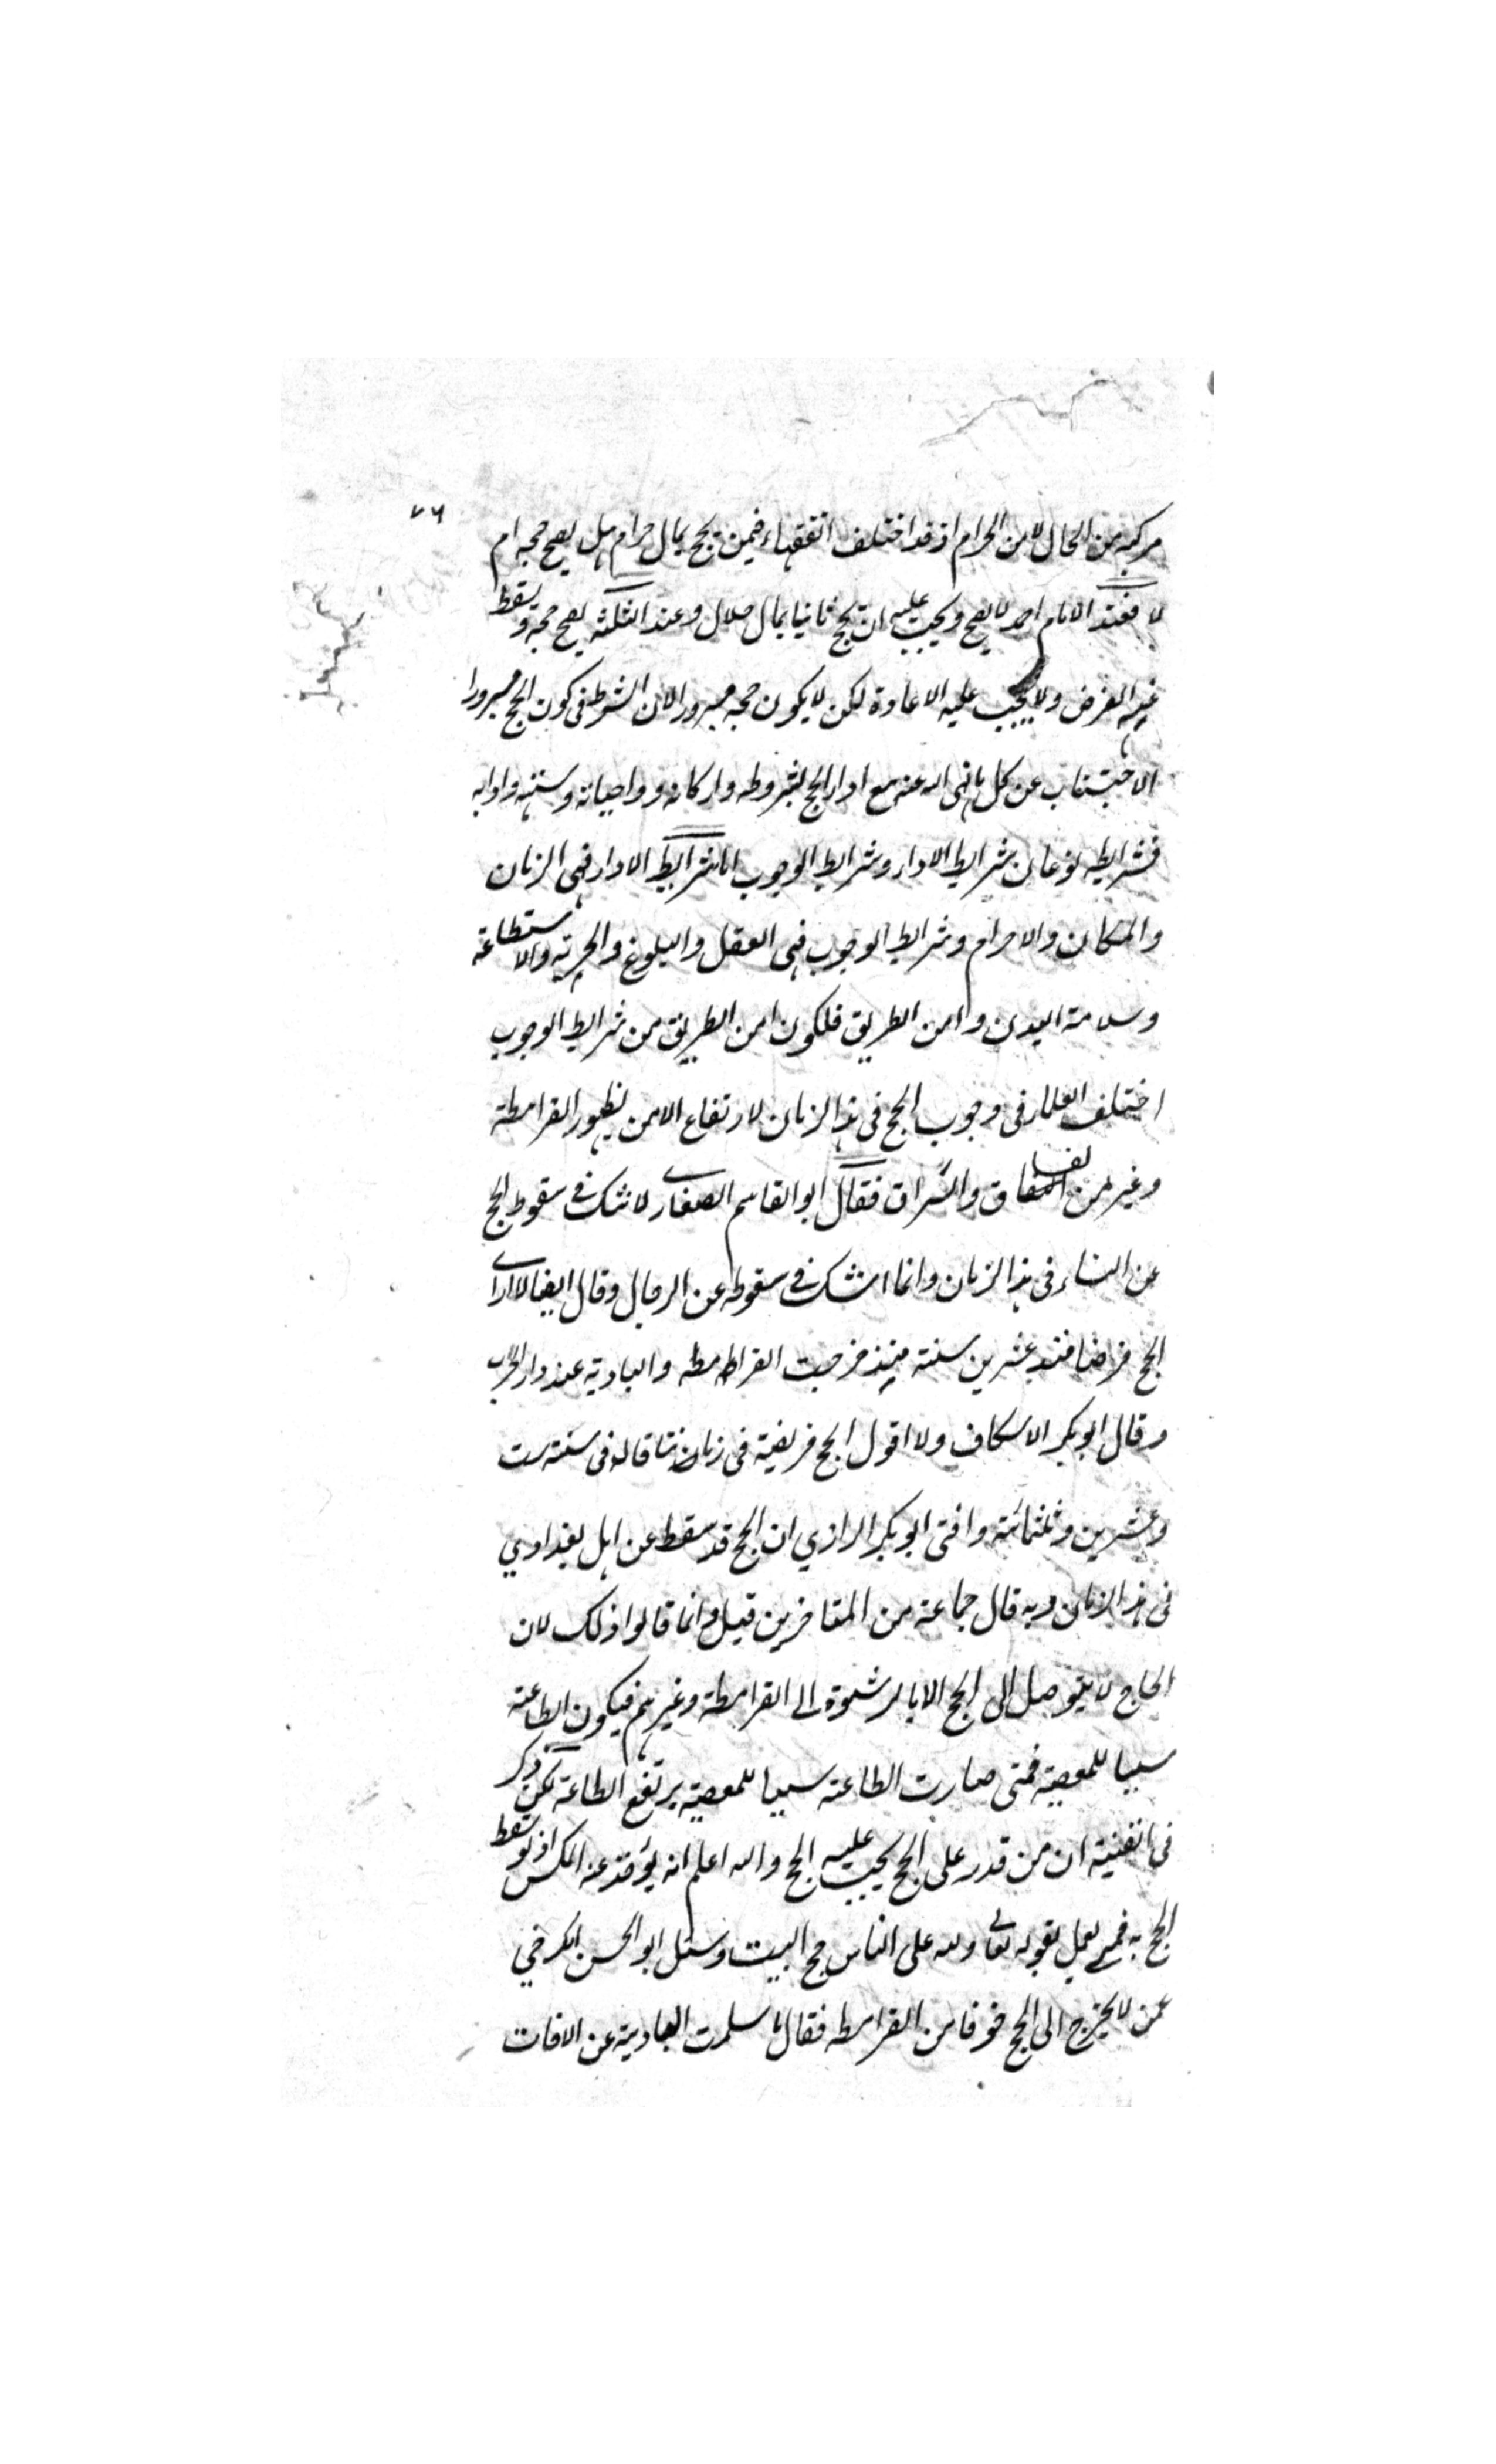 ٧٦
مركبه من الحال لا من الحرام اذ قد اختلف الفقهاء فيمن يحج بمال حرام هل يصح حجه ام
لا فعند الامام احمد لا يصح ويجب عليه ان يحج ثانيا بمال حلال وعند الثلثه يصح حجه ويسقط
عنه الفرض ولا يجب عليه الاعادة لكن لا يكون حجه مبرورا لان الشرط فى كون الحج مبرورا
الاجتناب عن كل ما نهى الله عنه مع اداء الحج بشروطه واركانه وواجباته وسننه وادابه
فشرايطه نوعان شرايط الاداء وشرايط الوجوب اما شرايط الاداء فهى الزمان
والمكان والاحرام وشرايط الوجوب فهى العقل والبلوغ والحرية والاستطاعة
وسلامة البدن وامن الطريق فلكون امن الطريق من شرايط الوجوب
اختلف العلماء فى وجوب الحج فى هذا الزمان لارتفاع الامن بظهور القرامطة
وغيرهم من والسراق فقال ابو القاسم الصفار لا شك فى سقوط الحج
عن النساء فى هذا الزمان وانما اشك فى سقوطه عن الرجال وقال ايضا لا ارا
الحج فرضا منذ عشرين سنة منذ خرجت القرامطه والبادية عند دار الحرب
وقال ابو بكر الاسكاف ولا اقول الحج فريضة فى زماننا قاله فى سنة ست
وعشرين وثلثمائة وافتى ابو بكر الرازي ان الحج قد سقط عن اهل بغدادي
فى هذا الزمان وبه قال جماعة من المتاخرين قيل وانما قالوا ذلك لان
الحاج لا يتوصل الى الحج الا بالرشوة الى القرامطة وغيرهم فيكون الطاعة
سببا للمعصية فمتى صارت الطاعة سببا للمعصية يرتفع الطاعة لكن ذكر
فى القنية ان من قدر على الحج يجب عليه الحج والله اعلم انه يؤخذ عنه المكس اذ لو سقط
الحج به فمتى يعمل بقوله تعالى ولله على الناس حج البيت وسئل ابو الحسن الكرخي
عمن لا يخرج الى الحج خوفا من القرامطه فقال ما سلمت البادية عن الافات